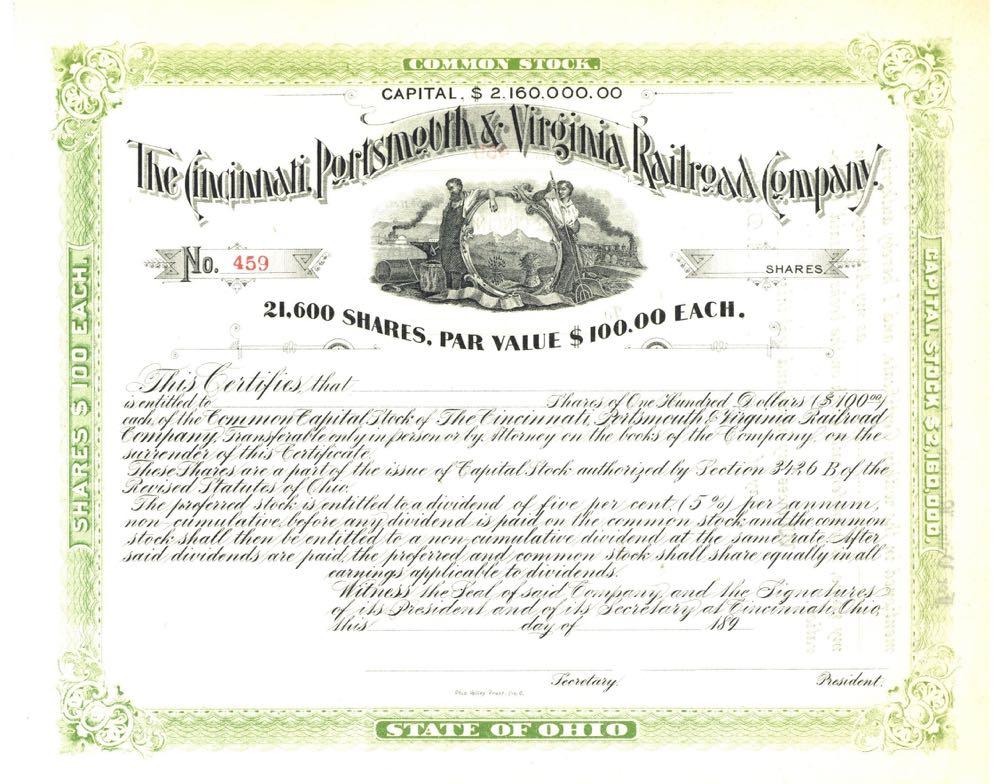 COMMON STOCK.
CAPITAL. $ 2.160.000.00
The Cincinnati, Portsmouth & Virginia Railroad Company.
No. 459
SHARES.
21,600 SHARES, PAR VALUE $100.00 EACH.
SHARES $ 100 EACH.
CAPITAL STOCK $2,160,000.
This Certifies, that
is entitled to Shares of One Hundred Dollars ($100⁰⁰)
each, of the Common Capital Stock of The Cincinnati, Portsmouth & Virginia Railroad
Company, Transferable only in person or by Attorney on the books of the Company, on the
surrender of this Certificate.
These Shares are a part of the issue of Capital Stock authorized by Section 3426 B of the
Revised Statutes of Ohio.
The preferred stock is entitled to a dividend of five per cent, (5%) per annum,
non-cumulative, before any dividend is paid on the common stock and the common
stock shall then be entitled to a non-cumulative dividend at the same rate. After
said dividends are paid, the preferred and common stock shall share equally in all
earnings applicable to dividends.
Witness the Seal of said Company, and the Signatures
of its President and of its Secretary at Cincinnati, Ohio,
this day of 189
Secretary.
President.
Ohio Valley Press. Cin. O.
STATE OF OHIO